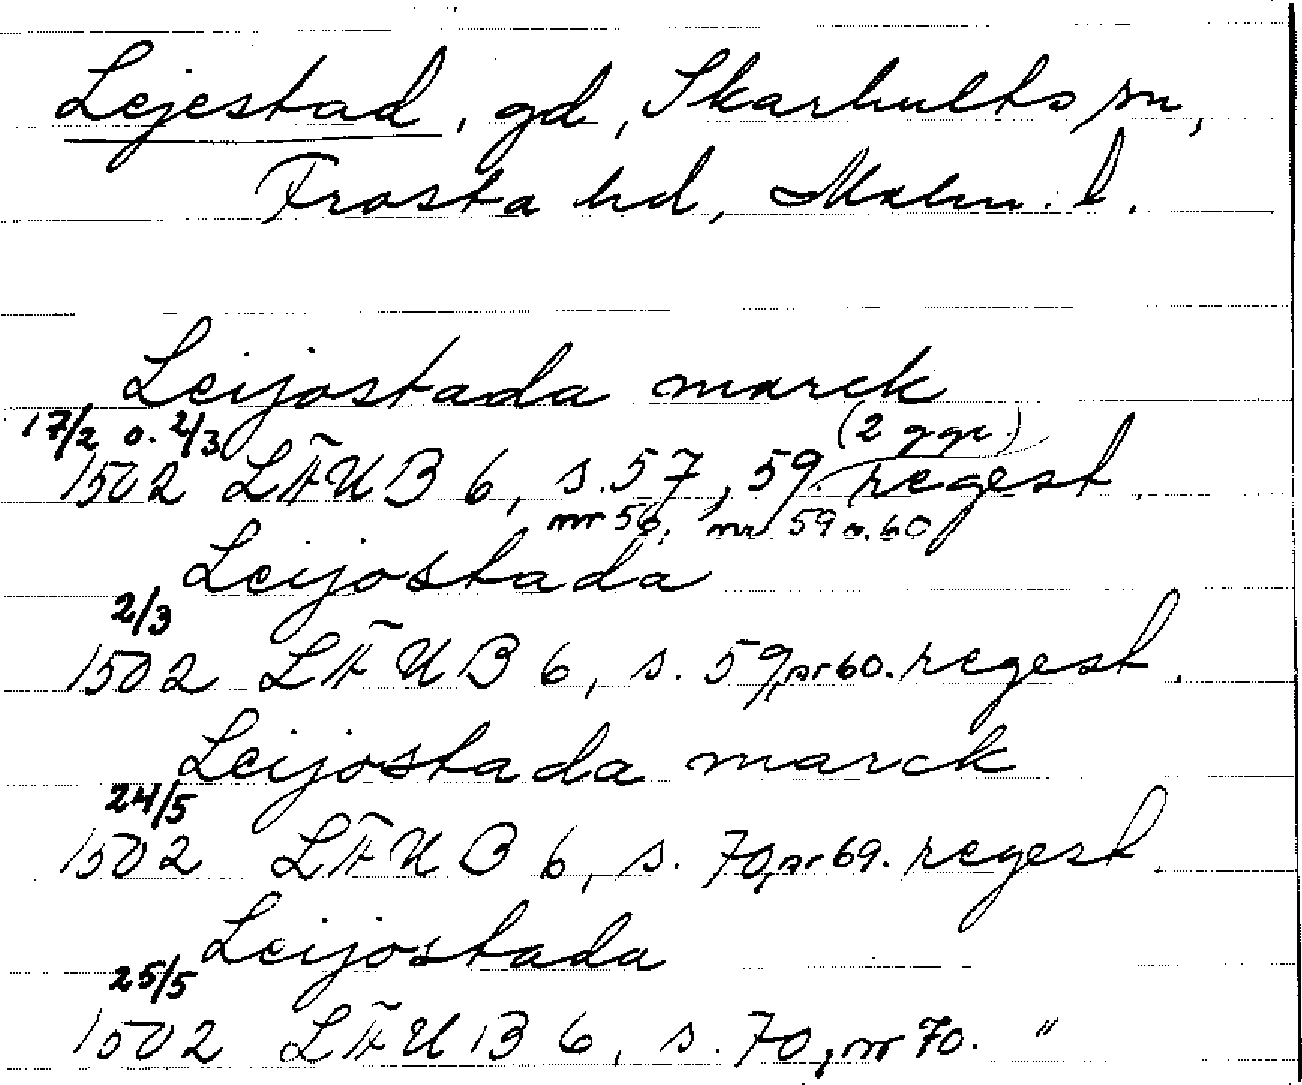 Lejestad, gd, Skarhults sn,
Frosta hd, Malm. l.
Leijostada marck
17/2 o. 2/3 (2 ggr.)
1502 LÄUB 6, s. 57, 59. regest.
nr 56, nr 59 o. 60
Leijostada
2/3
1502 LÄUB 6, s. 59, nr 60. regest.
Leijostada marck
24/5
1502 LÄUB 6, s. 70, nr 69. regest.
Leijostada
25/5
1502 LÄUB 6, s. 70, nr 70. "